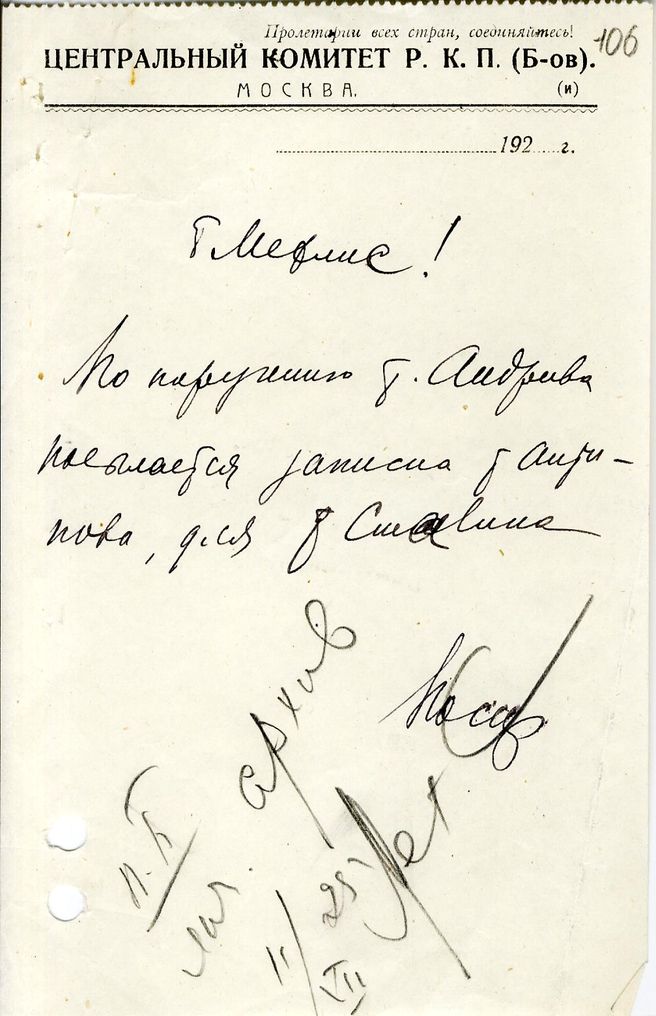 Пролетарии всех стран, соединяйтесь!
106
ЦЕНТРАЛЬНЫЙ КОМИТЕТ Р. К. П. (Б-ов).
МОСКВА.
(и)
192 г.
т Мехлис!
По поручению т. Андреева
посылается записка т Анти-
пова, для т Сталина
архив
П.Б.
11/VII 25